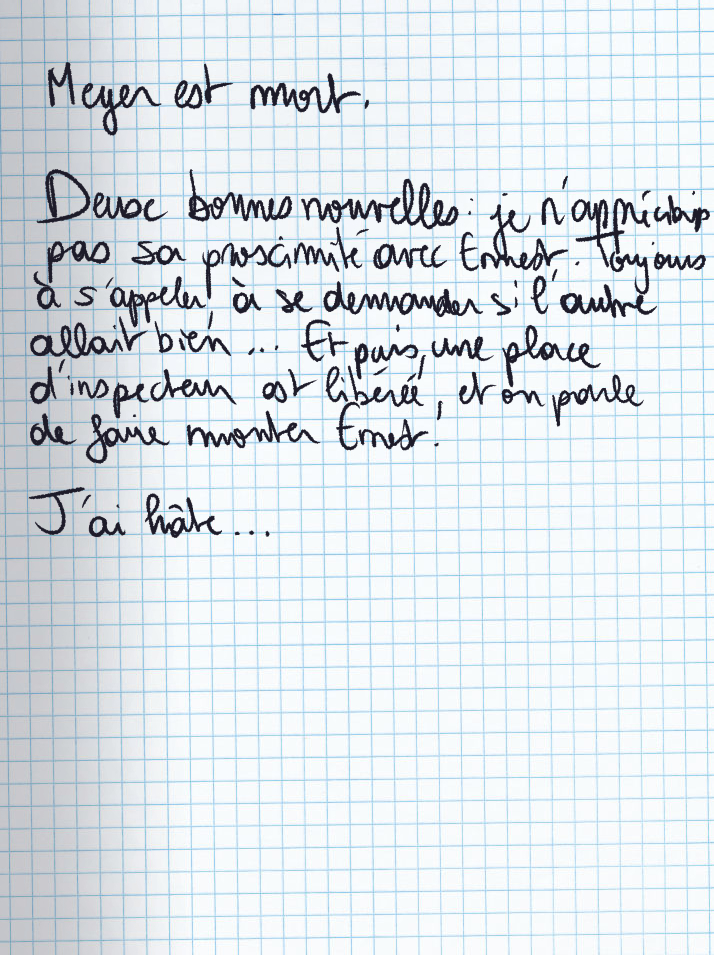 Meyer est mort.
Deux bonnes nouvelles : je n'appréciais
pas sa proximité avec Ernest. Toujours
à s'appeler, à se demander si l'autre
allait bien... Et puis, une place
d'inspecteur est libérée, et on parle
de faire monter Ernest.
J'ai hâte...